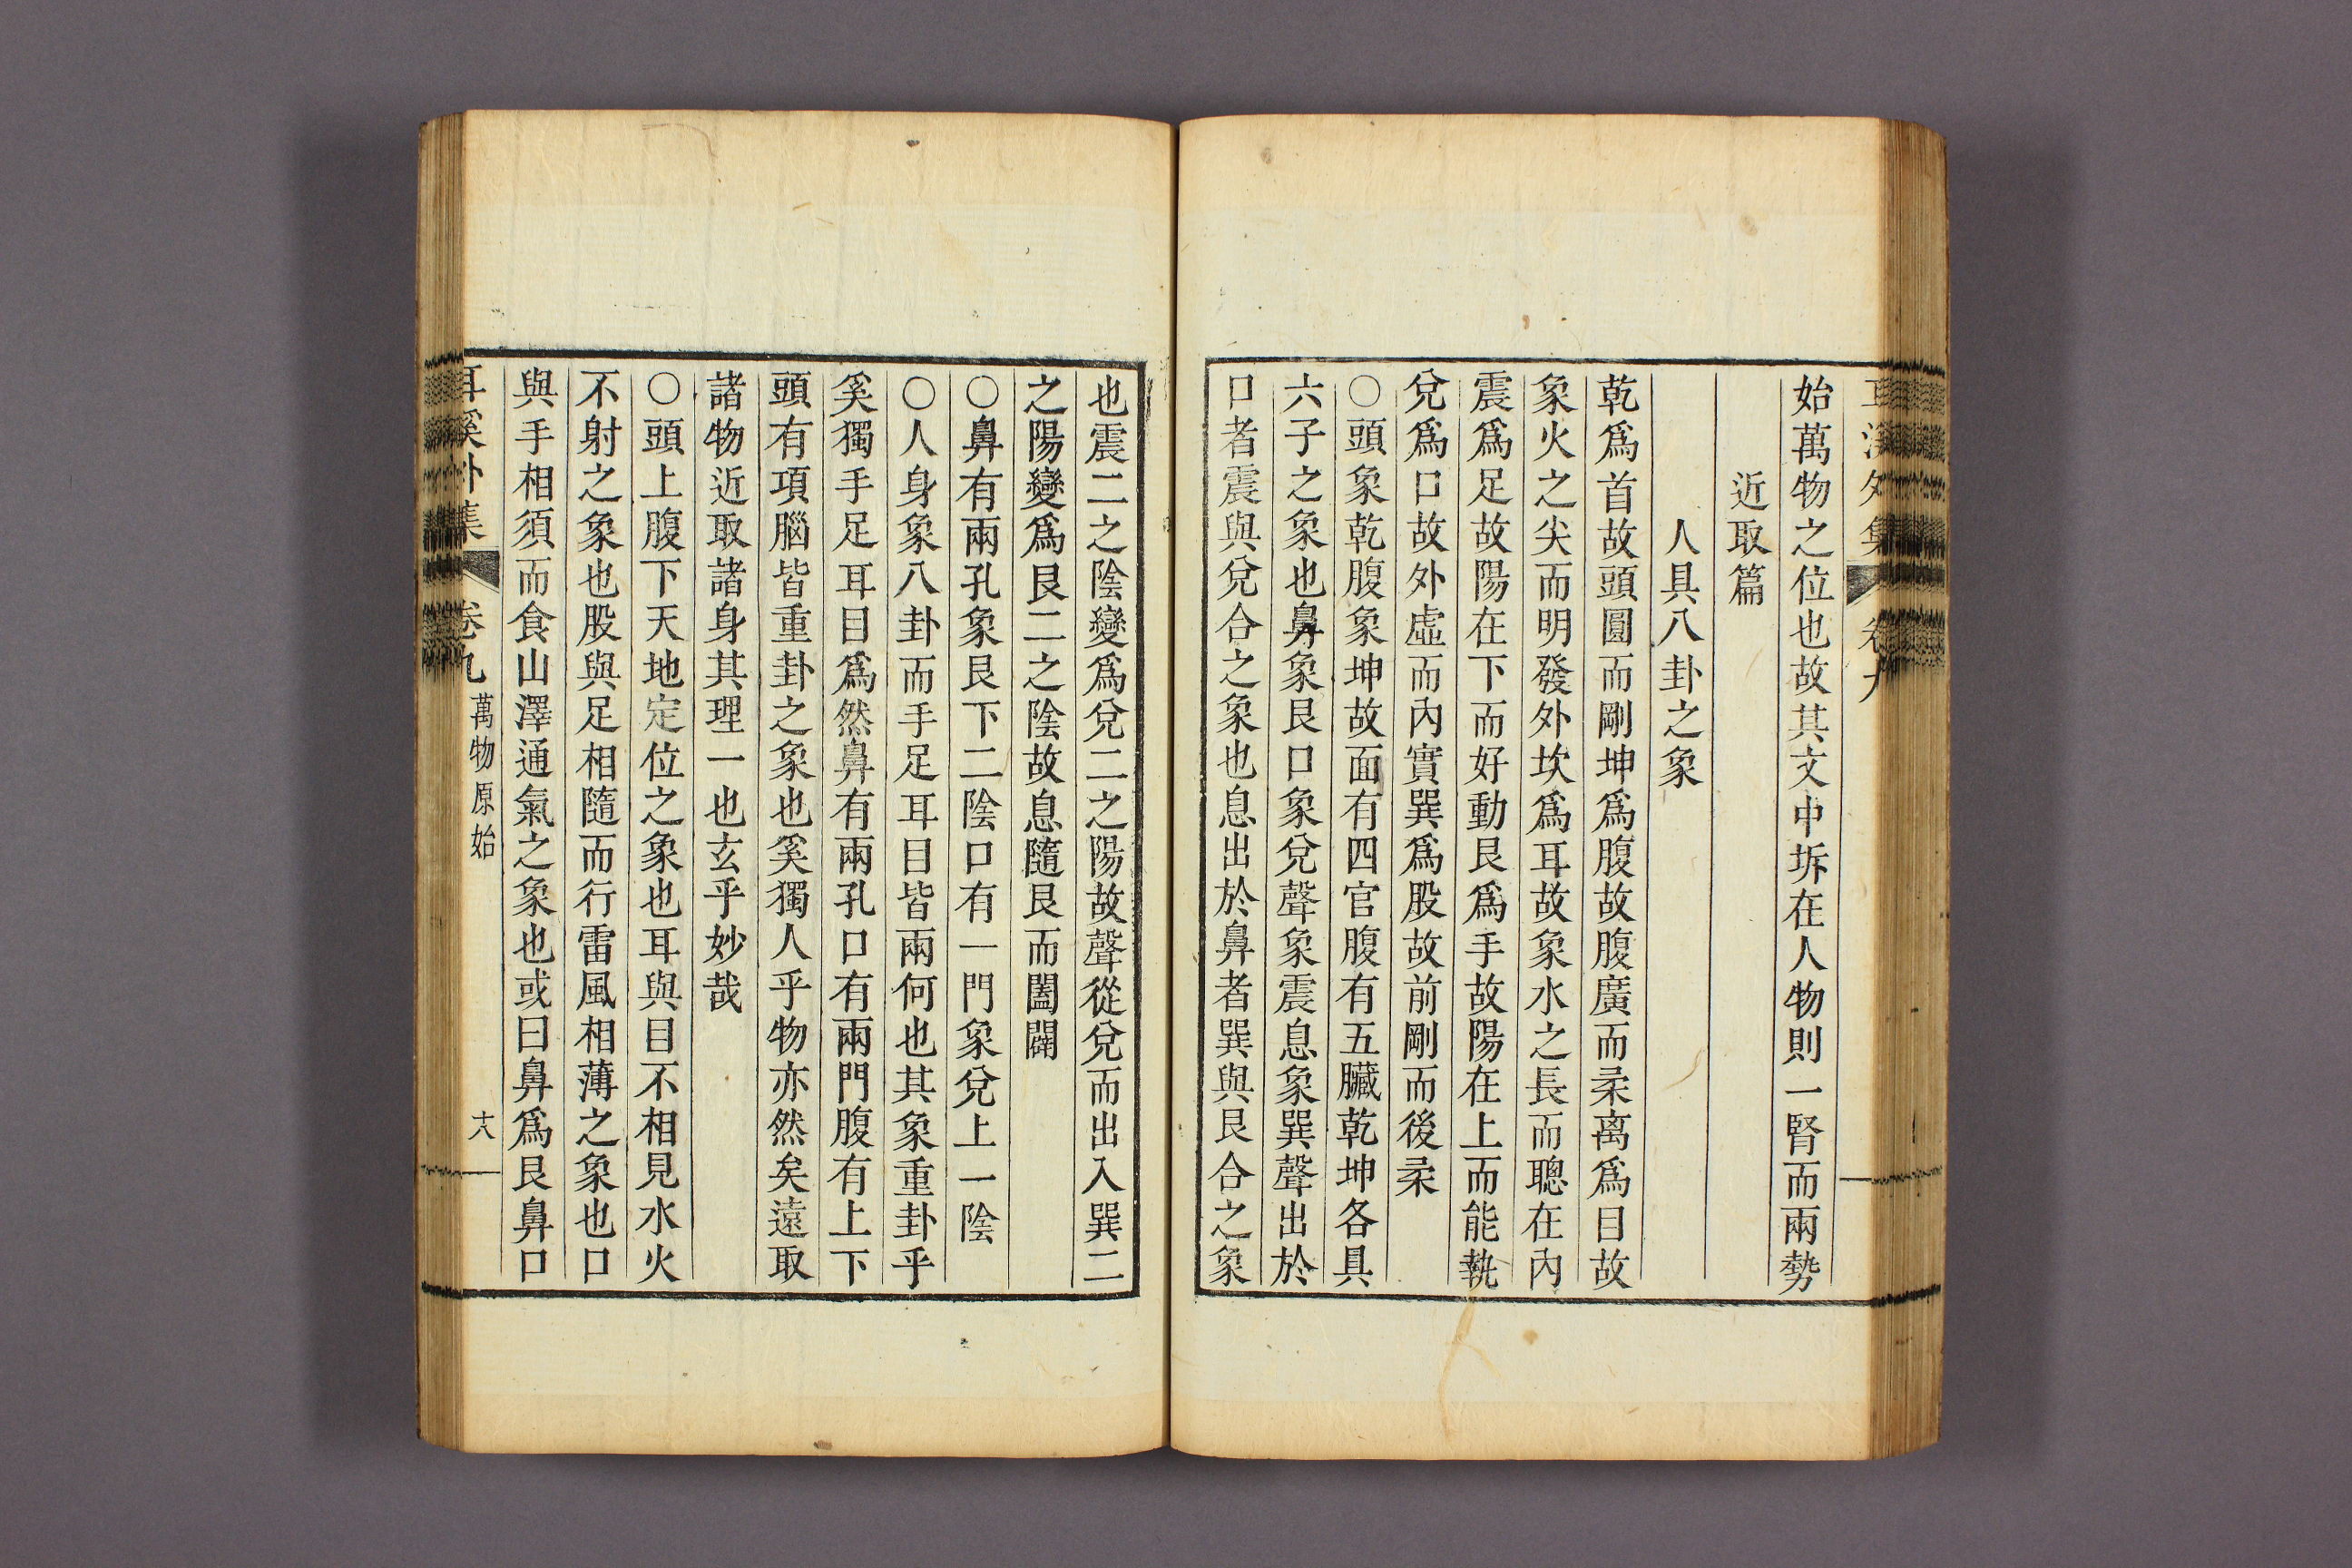 始萬物之位也故其文中坼在人物則一腎而兩勢
近取篇
人具八卦之象
乾爲首故頭圓而剛坤爲腹故腹廣而柔离爲目故
象火之尖而明發外坎爲耳故象水之長而聰在內
震爲足故陽在下而好動艮爲手故陽在上而能執
兌爲口故外虛而內實巽爲股故前剛而後柔
〇頭象乾腹象坤故面有四官腹有五臟乾坤各具
六子之象也鼻象艮口象兌聲象震息象巽聲出於
口者震與兌合之象也息出於鼻者巽與艮合之象
也震二之陰變爲兌二之陽故聲從兌而出入巽二
之陽變爲艮二之陰故息隨艮而闔闢
〇鼻有兩孔象艮下二陰口有一門象兌上一陰
〇人身象八卦而手足耳目皆兩何也其象重卦乎
奚獨手足耳目爲然鼻有兩孔口有兩門腹有上下
頭有項腦皆重卦之象也奚獨人乎物亦然矣遠取
諸物近取諸身其理一也玄乎妙哉
〇頭上腹下天地定位之象也耳與目不相見水火
不射之象也股與足相隨而行雷風相薄之象也口
與手相須而食山澤通氣之象也或曰鼻爲艮鼻口
耳溪外集 卷九 萬物原始 十八